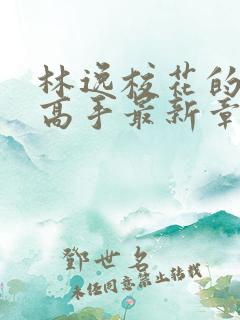 林逸校花的
高手最新章
鄧世名
未经同意禁止转载